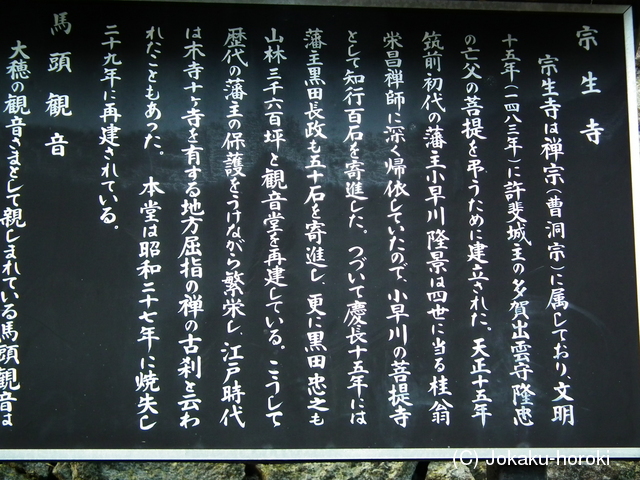 宗生寺
宗生寺は禅宗(曹洞宗)に属しており、文明
十五年(一四八三年)に許斐城主の多賀出雲守隆忠
の亡父の菩提を弔うために建立された。天正十五年
筑前初代の藩主小早川隆景は四世に当る桂翁
栄昌禅師に深く帰依していたので、小早川の菩提寺
として知行百石を寄進した。つづいて慶長十五年には
藩主黒田長政も五十石を寄進し、更に黒田忠之も
山林三千六百坪と観音堂を再建している。こうして
歴代の藩主の保護をうけながら繁栄し、江戸時代
は末寺十ヶ寺を有する地方屈指の禅の古刹と云わ
れたこともあった。 本堂は昭和二十七年に焼失し
二十九年に再建されている。
馬頭観音
大穂の観音さまとして親しまれている馬頭観音は
(C) Jokaku-horoki